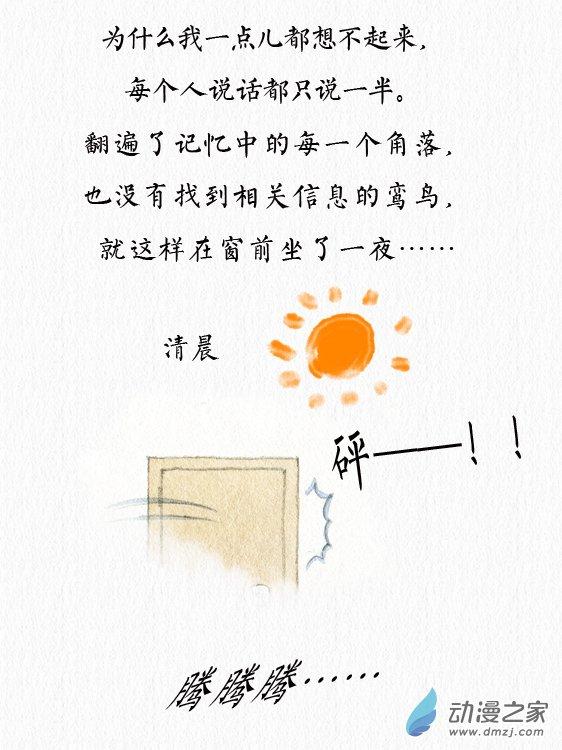 为什么我一点儿都想不起来，
每个人说话都只说一半。
翻遍了记忆中的每一个角落，
也没有找到相关信息的鸾鸟，
就这样在窗前坐了一夜……
清晨
砰——！！
腾腾腾……
动漫之家
www.dmzj.com